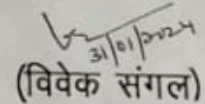 31/01/2024
(विवेक संगल)